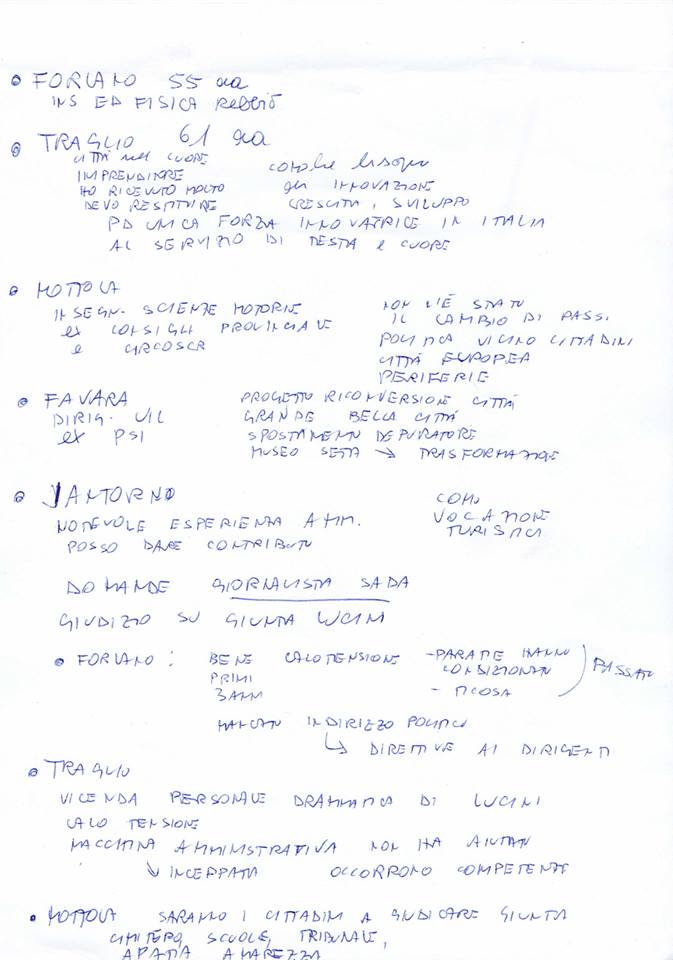 • FORLANO 55 anni
INS ED FISICA Rebbio
• TRAGLIO 61 anni
CITTÀ nel CUORE
IMPRENDITORE
HO RICEVUTO MOLTO
DEVO RESTITUIRE
COMO ha bisogno
di INNOVAZIONE
CRESCITA, SVILUPPO
PD UNICA FORZA INNOVATRICE IN ITALIA
AL SERVIZIO DI TESTA e CUORE
• MOTTOLA
INSEGN. SCIENZE MOTORIE
ex CONSIGLI PROVINCIALE
e CIRCOSCR
NON C'È STATO
IL CAMBIO DI PASSO
POLITICA VICINO CITTADINI
CITTÀ EUROPEA
PERIFERIE
• FAVARA
DIRIG. UIL
ex PSI
PROGETTO RICONVERSIONE CITTÀ
GRANDE BELLA CITTÀ
SPOSTAMENTO DEPURATORE
MUSEO SETA → TRASFORMAZIONE
• VANTORNO
NOTEVOLE ESPERIENZA AMM.
POSSO DARE CONTRIBUTO
COMO
VOCAZIONE
TURISTICA
DOMANDE GIORNALISTA SADA
GIUDIZIO SU GIUNTA LUCINI
• FORLANO: BENE
PRIMI
3 ANNI
CALO TENSIONE
- PARATIE HANNO
CONDIZIONATO
- TICOSA
PASSATO
MANCATO INDIRIZZO POLITICO
↳ DIRETTIVE AI DIRIGENTI
• TRAGLIO
VICENDA PERSONALE DRAMMATICA DI LUCINI
CALO TENSIONE
MACCHINA AMMINISTRATIVA NON HA AIUTATO
↘ INCEPPATA OCCORRONO COMPETENZE
• MOTTOLA SARANNO I CITTADINI A GIUDICARE GIUNTA
CIMITERO, SCUOLE, TRIBUNALE,
APATIA AMAREZZA